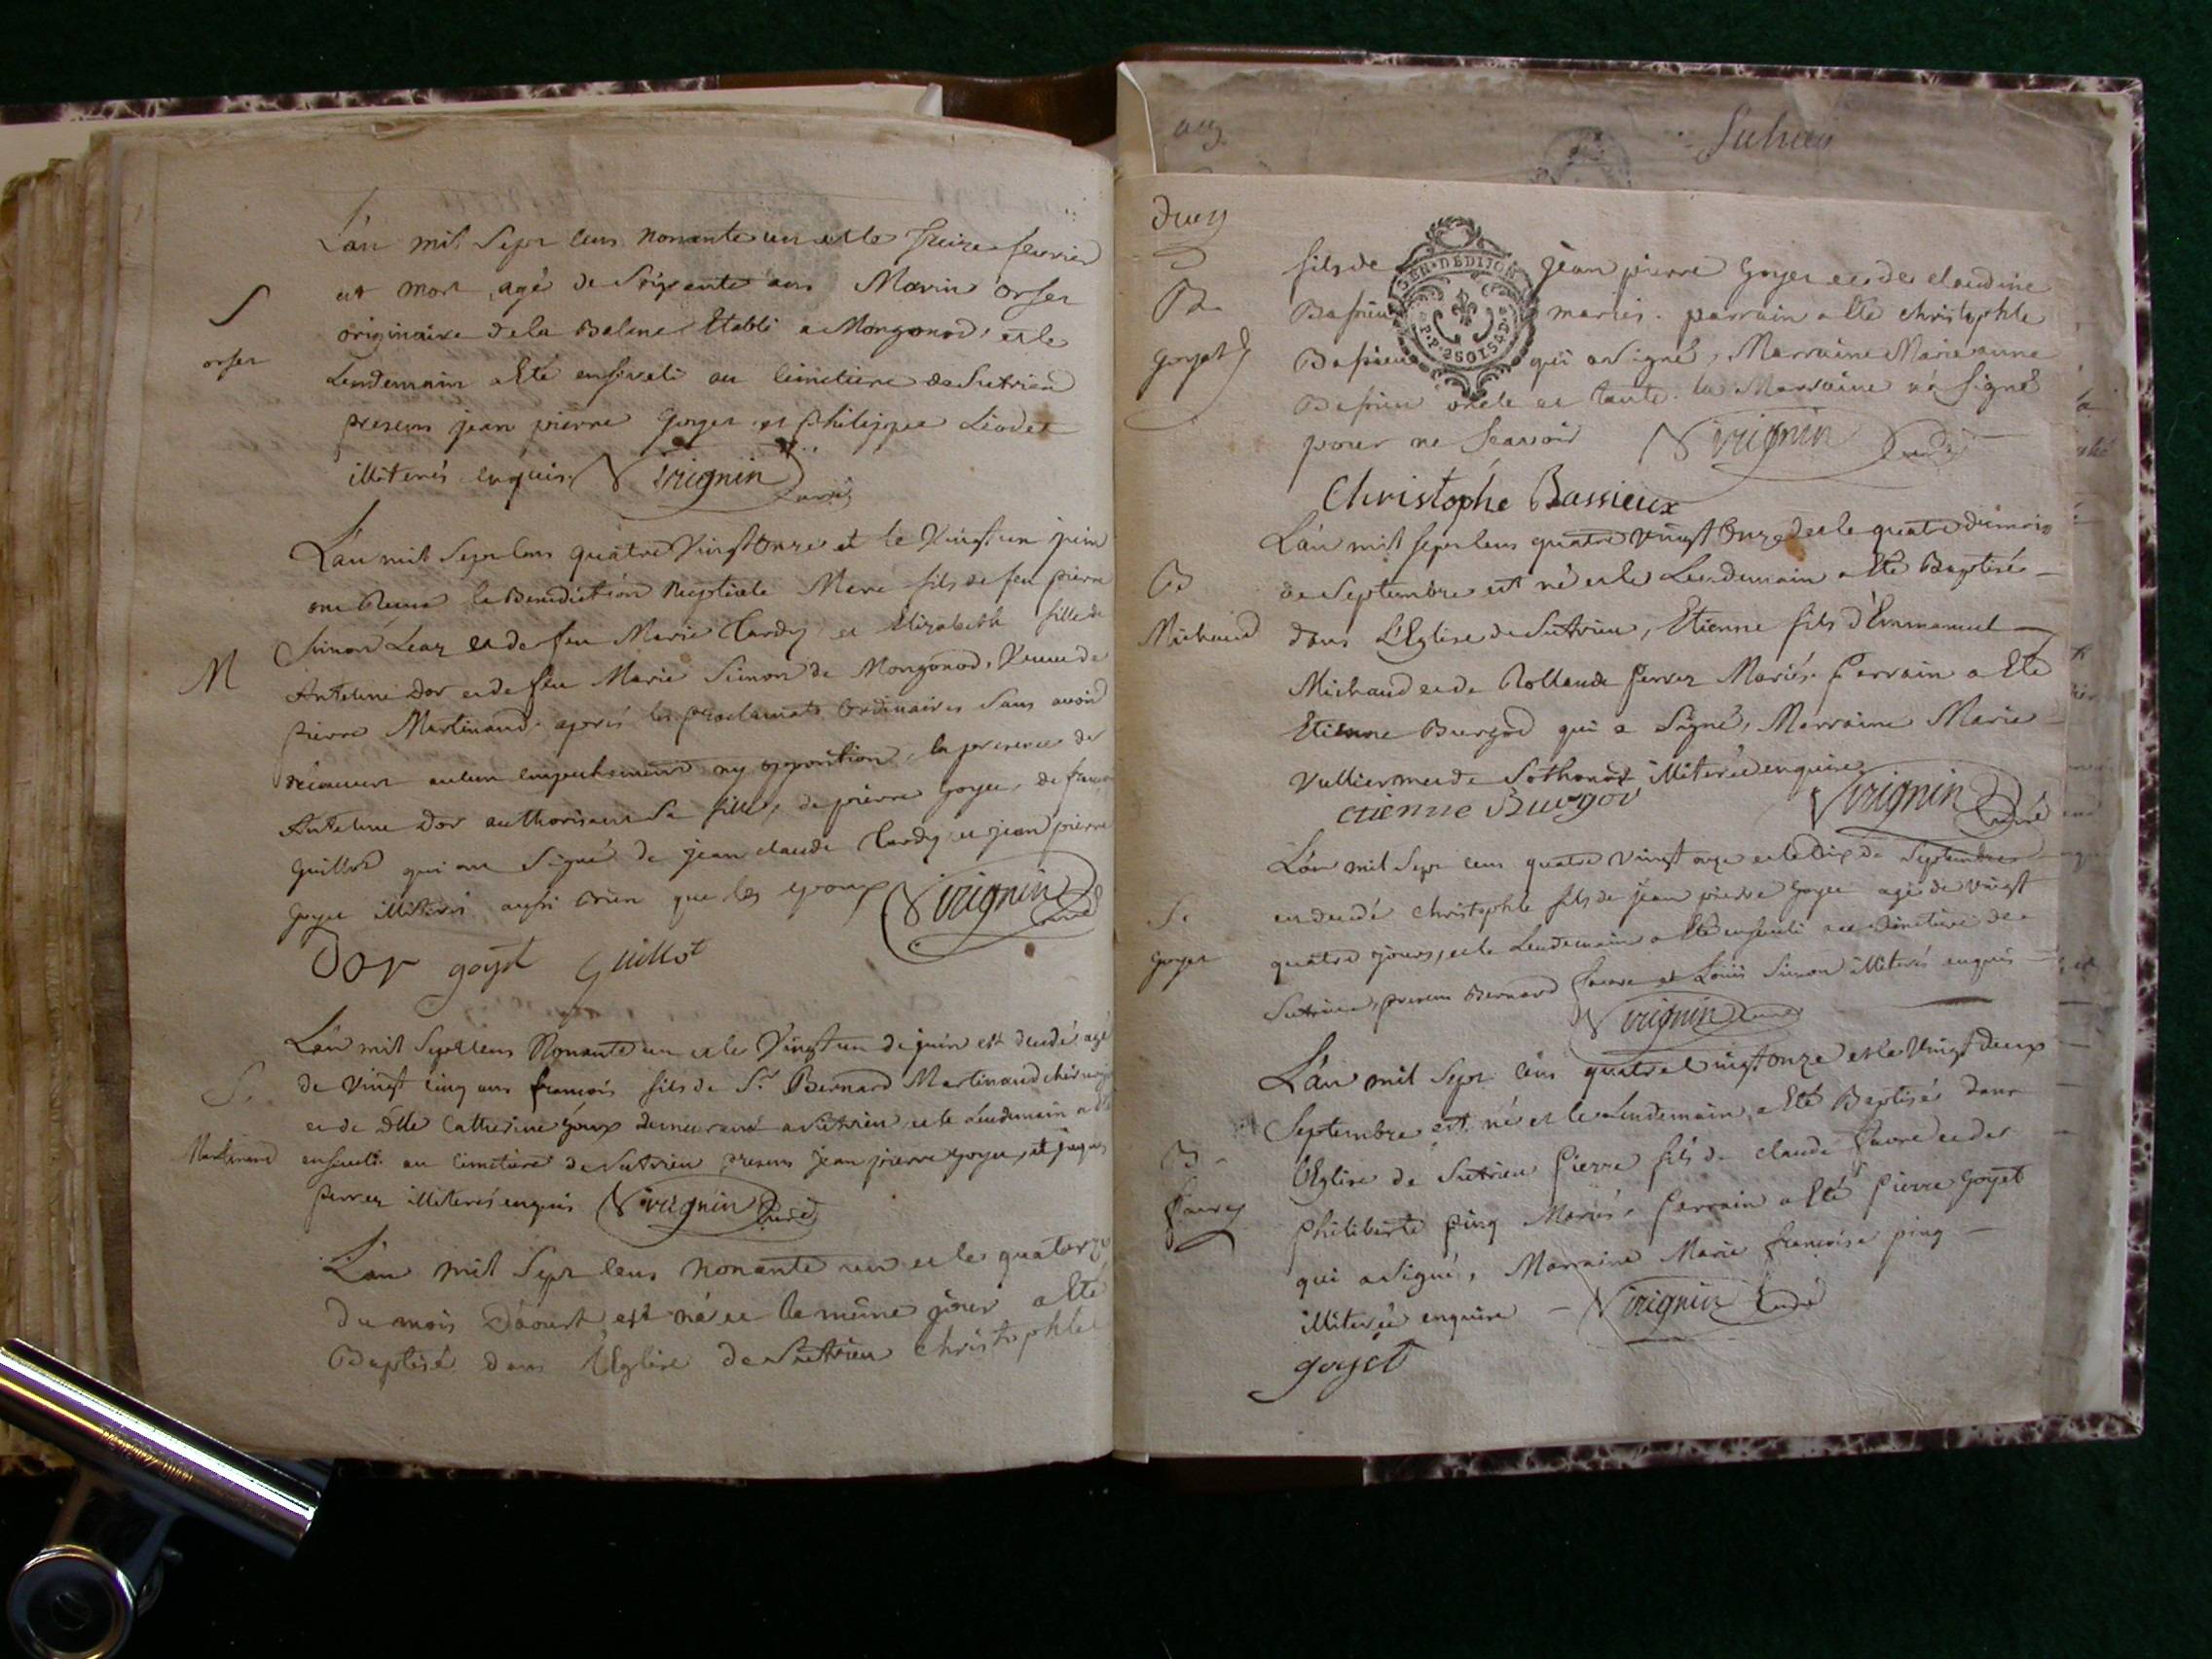 L'an mil Sept Cens Nonante un et le Treize fevrier
est mort, agé de Soixante ans Marin orset
S
originaire de la Balme Etabli a Mongonod, et le
orset
Lendemain a Eté enseveli au Cimetiere de Sutrieu
presens jean pierre Goyet et Philippe Liodet
illiterés enquis. Virignin Curé
L'an mil Sept Cens quatre Vingt Onze et le Vingt un juin
ont Reçus la Benediction Nuptiale Marc fils de feu pierre
Simon Leaz et de feu Marie Tardy et Elizabeth fille de
M
Antelme Dor et de feu Marie Simon de Mongonod, Veuve de
pierre Martinand après les proclamats Ordinaires Sans avoir
decouvert aucun empechement ny opposition, la presence de
Antelme Dor authorisant Sa fille, de pierre Goyet, de
Guillot qui ont Signé de jean claude Tardy et jean pierre
Goyet illiterés aussi Bien que les epoux Virignin Curé
Dor goyet Guillot
L'an mil Sept Cens Nonante un et le Vingt un de juin est decedé agé
de Vingt Cinq ans françois fils de Sr. Bernard Martinand
S.
et de Dlle Catherine Goux demeurant a Sutrieu et le Lendemain a Eté
Martinand
enseveli au Cimetiere de Sutrieu presens jean pierre Goyet, et jaques
ferrez illiterés enquis Virignin Curé
L'an mil Sept Cens Nonante un et le quatorze
du mois D'aoust est né et le même jour a Eté
Baptisé dans l'Eglise de Sutrieu Christophle
fils de jean pierre Goyet et de claudine
B.
Bassieu mariés. parrain a Eté christophle
Goyet
Bassieu qui a Signé, Marraine Marie anne
Bassieu oncle et tante. la Marraine n'a Signé
pour ne Scavoir Virignin Curé
Christophe Bassieux
L'an mil Sept Cens quatre Vingt Onze et le quatre du mois
B
de Septembre est né et le Lendemain a Eté Baptisé
Michaud
dans L'Eglise de Sutrieu, Etienne fils d'Emmanuel
Michaud et de Rollande ferrez Mariés. Parrain a Eté
Etienne Burgod qui a Signé, Marraine Marie
Vulliermet de Sothonod illiterée enquise.
etienne Burgod Virignin Curé
L'an mil Sept Cens quatre Vingt onze et le Dix de Septembre
est decedé christophle fils de jean pierre Goyet agé de Vingt
S.
Goyet
quatre jours, et le Lendemain a Eté enseveli au Cimetiere de
Sutrieu presens Bernard favre et Louis Simon illiterés enquis
Virignin Curé
L'an mil Sept Cens quatre Vingt Onze et le Vingt Deux
Septembre est né et le Lendemain a Eté Baptisé dans
B
l'Eglise de Sutrieu Pierre fils de claude favre et de
favre
Philiberte ping Mariés, Parrain a Eté Pierre Goyet
qui a Signé, Marraine Marie françoise ping
illiterée enquise Virignin Curé
goyet